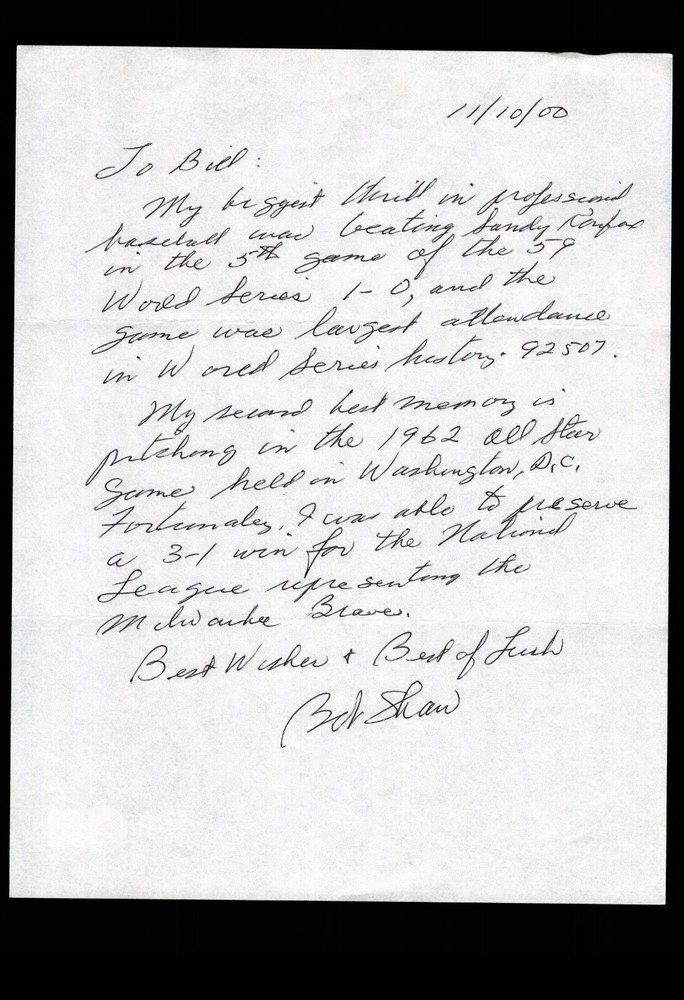 11/10/00
To Bill:
My biggest thrill in professional
baseball was beating Sandy Koufax
in the 5th game of the 59
World Series 1-0, and the
game was largest attendance
in World Series history. 92507.
My second best memory is
pitching in the 1962 All Star
Game held in Washington, D.C.
Fortunately, I was able to preserve
a 3-1 win for the National
League representing the
Milwaukee Brave.
Best Wishes + Best of Luck
Bob Shaw